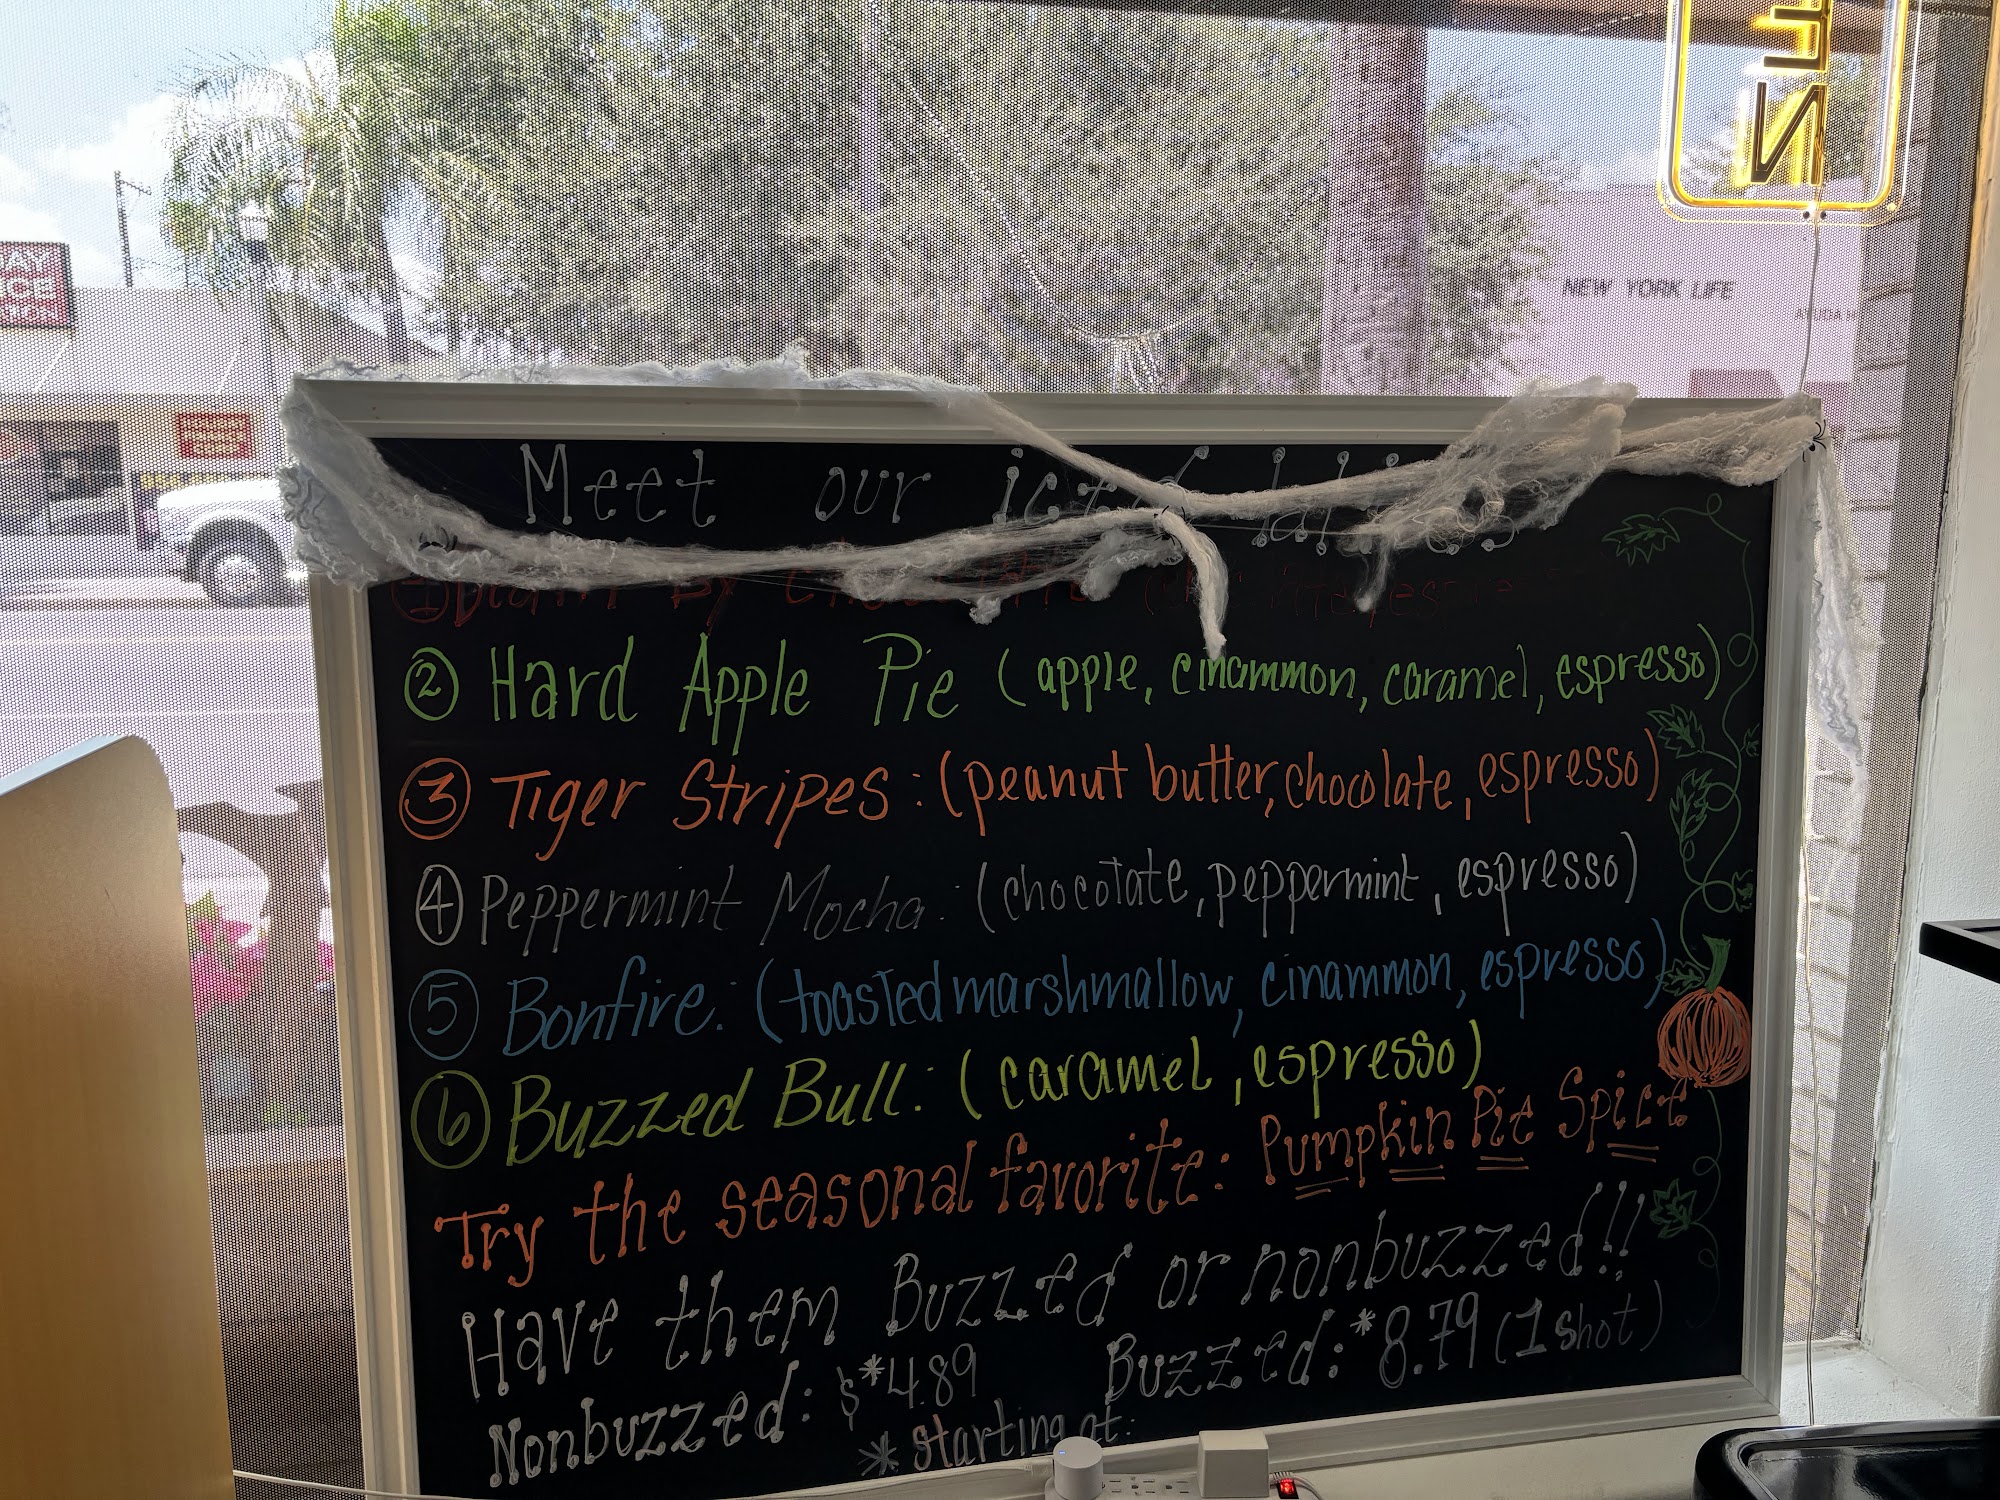 EN
AY
CE
ION
NEW YORK LIFE
Meet our iced lattes
① Death By Chocolate
② Hard Apple Pie (apple, cinammon, caramel, espresso)
③ Tiger Stripes: (peanut butter, chocolate, espresso)
④ Peppermint Mocha: (chocolate, peppermint, espresso)
⑤ Bonfire: (toasted marshmallow, cinammon, espresso)
⑥ Buzzed Bull: (caramel, espresso)
Try the seasonal favorite: Pumpkin Pie Spice
Have them Buzzed or nonbuzzed!!
Nonbuzzed: $*4.89 Buzzed: *8.79 (1 shot)
* starting at: